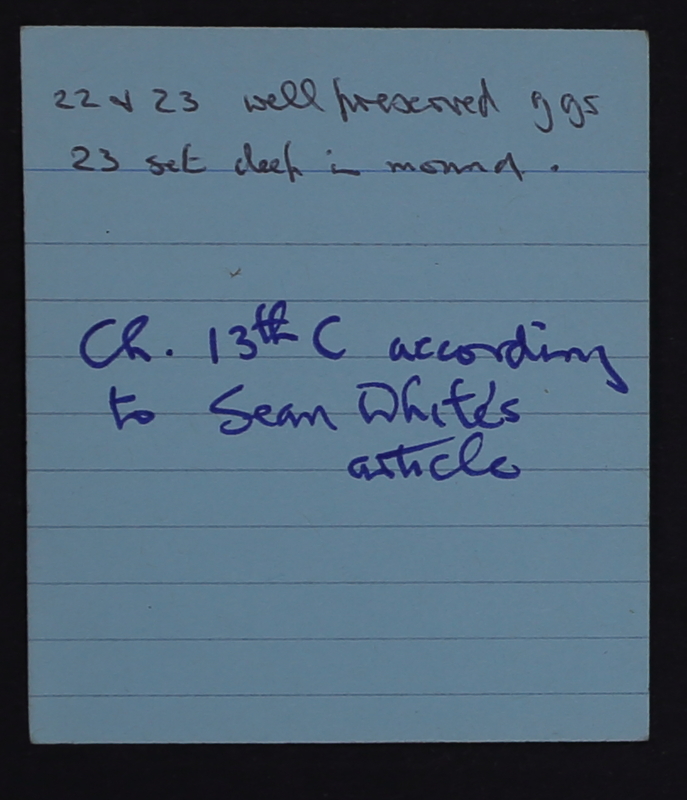 22 & 23 well preserved g gs
23 set deep in mound.
Ch. 13th C according
to Sean White's
article